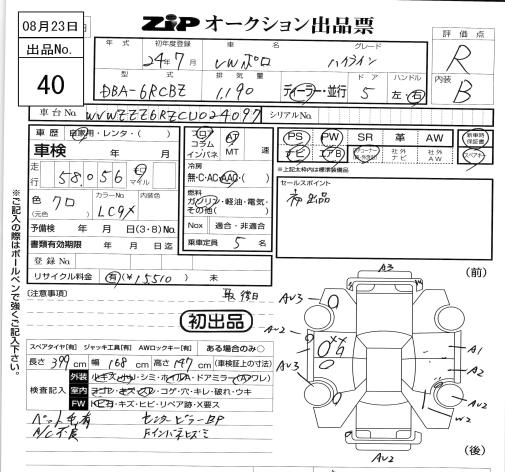 08月23日
出品No.
40
ZIP オークション出品票
評価点
R
内装
B
年式 初年度登録 車名 グレード
24年7月 VWポロ ハイライン
型式 排気量 ディーラー・並行 ドア ハンドル
DBA-6RCBZ 1,190 5 左・右
車台No. WVWZZZ6RZCU024097 シリアルNo.
車歴 自家用・レンタ・( )
車検 年 月
走行 58,056 km マイル
色 クロ カラーNo 内装色
(元色) LC9X
予備検 年 月 日(3・8)Mo.
書類有効期限 年 月 日迄
登録No.
リサイクル料金 有(¥15,510) 未
フロア コラム インパネ AT MT 速
冷房
無・C・AC・AAC・( )
燃料
ガソリン・軽油・電気・その他( )
Nox 適合・非適合
乗車定員 5 名
PS PW SR 革 AW
ナビ エアB 社外ナビ 社外AW
新車時保証書
スペアキー
※上記太枠内は標準装備品
セールスポイント
初出品
※ご記入の際はボールペンで強くご記入下さい。
(注意事項) 取後日
初出品
スペアタイヤ[有] ジャッキ工具[有] AWロックキー[有] ある場合のみ〇
長さ 399 cm 幅 168 cm 高さ 147 cm (車検証上の寸法)
検査記入
外装 小キズ・小凹・シミ・ホイルA・ドアミラー(A・ワレ)
室内 ヨゴレ・キズ・スレ・コゲ・穴・キレ・破れ・ウキ
FW トビ石・キズ・ヒビ・リペア跡・X要ス
ペット毛有 センターピラーBP
N/C不良 Fインパネヒズミ
(前)
A3
AU3
AU2
AU3
A1
A2
AU2
W2
AU2
(後)